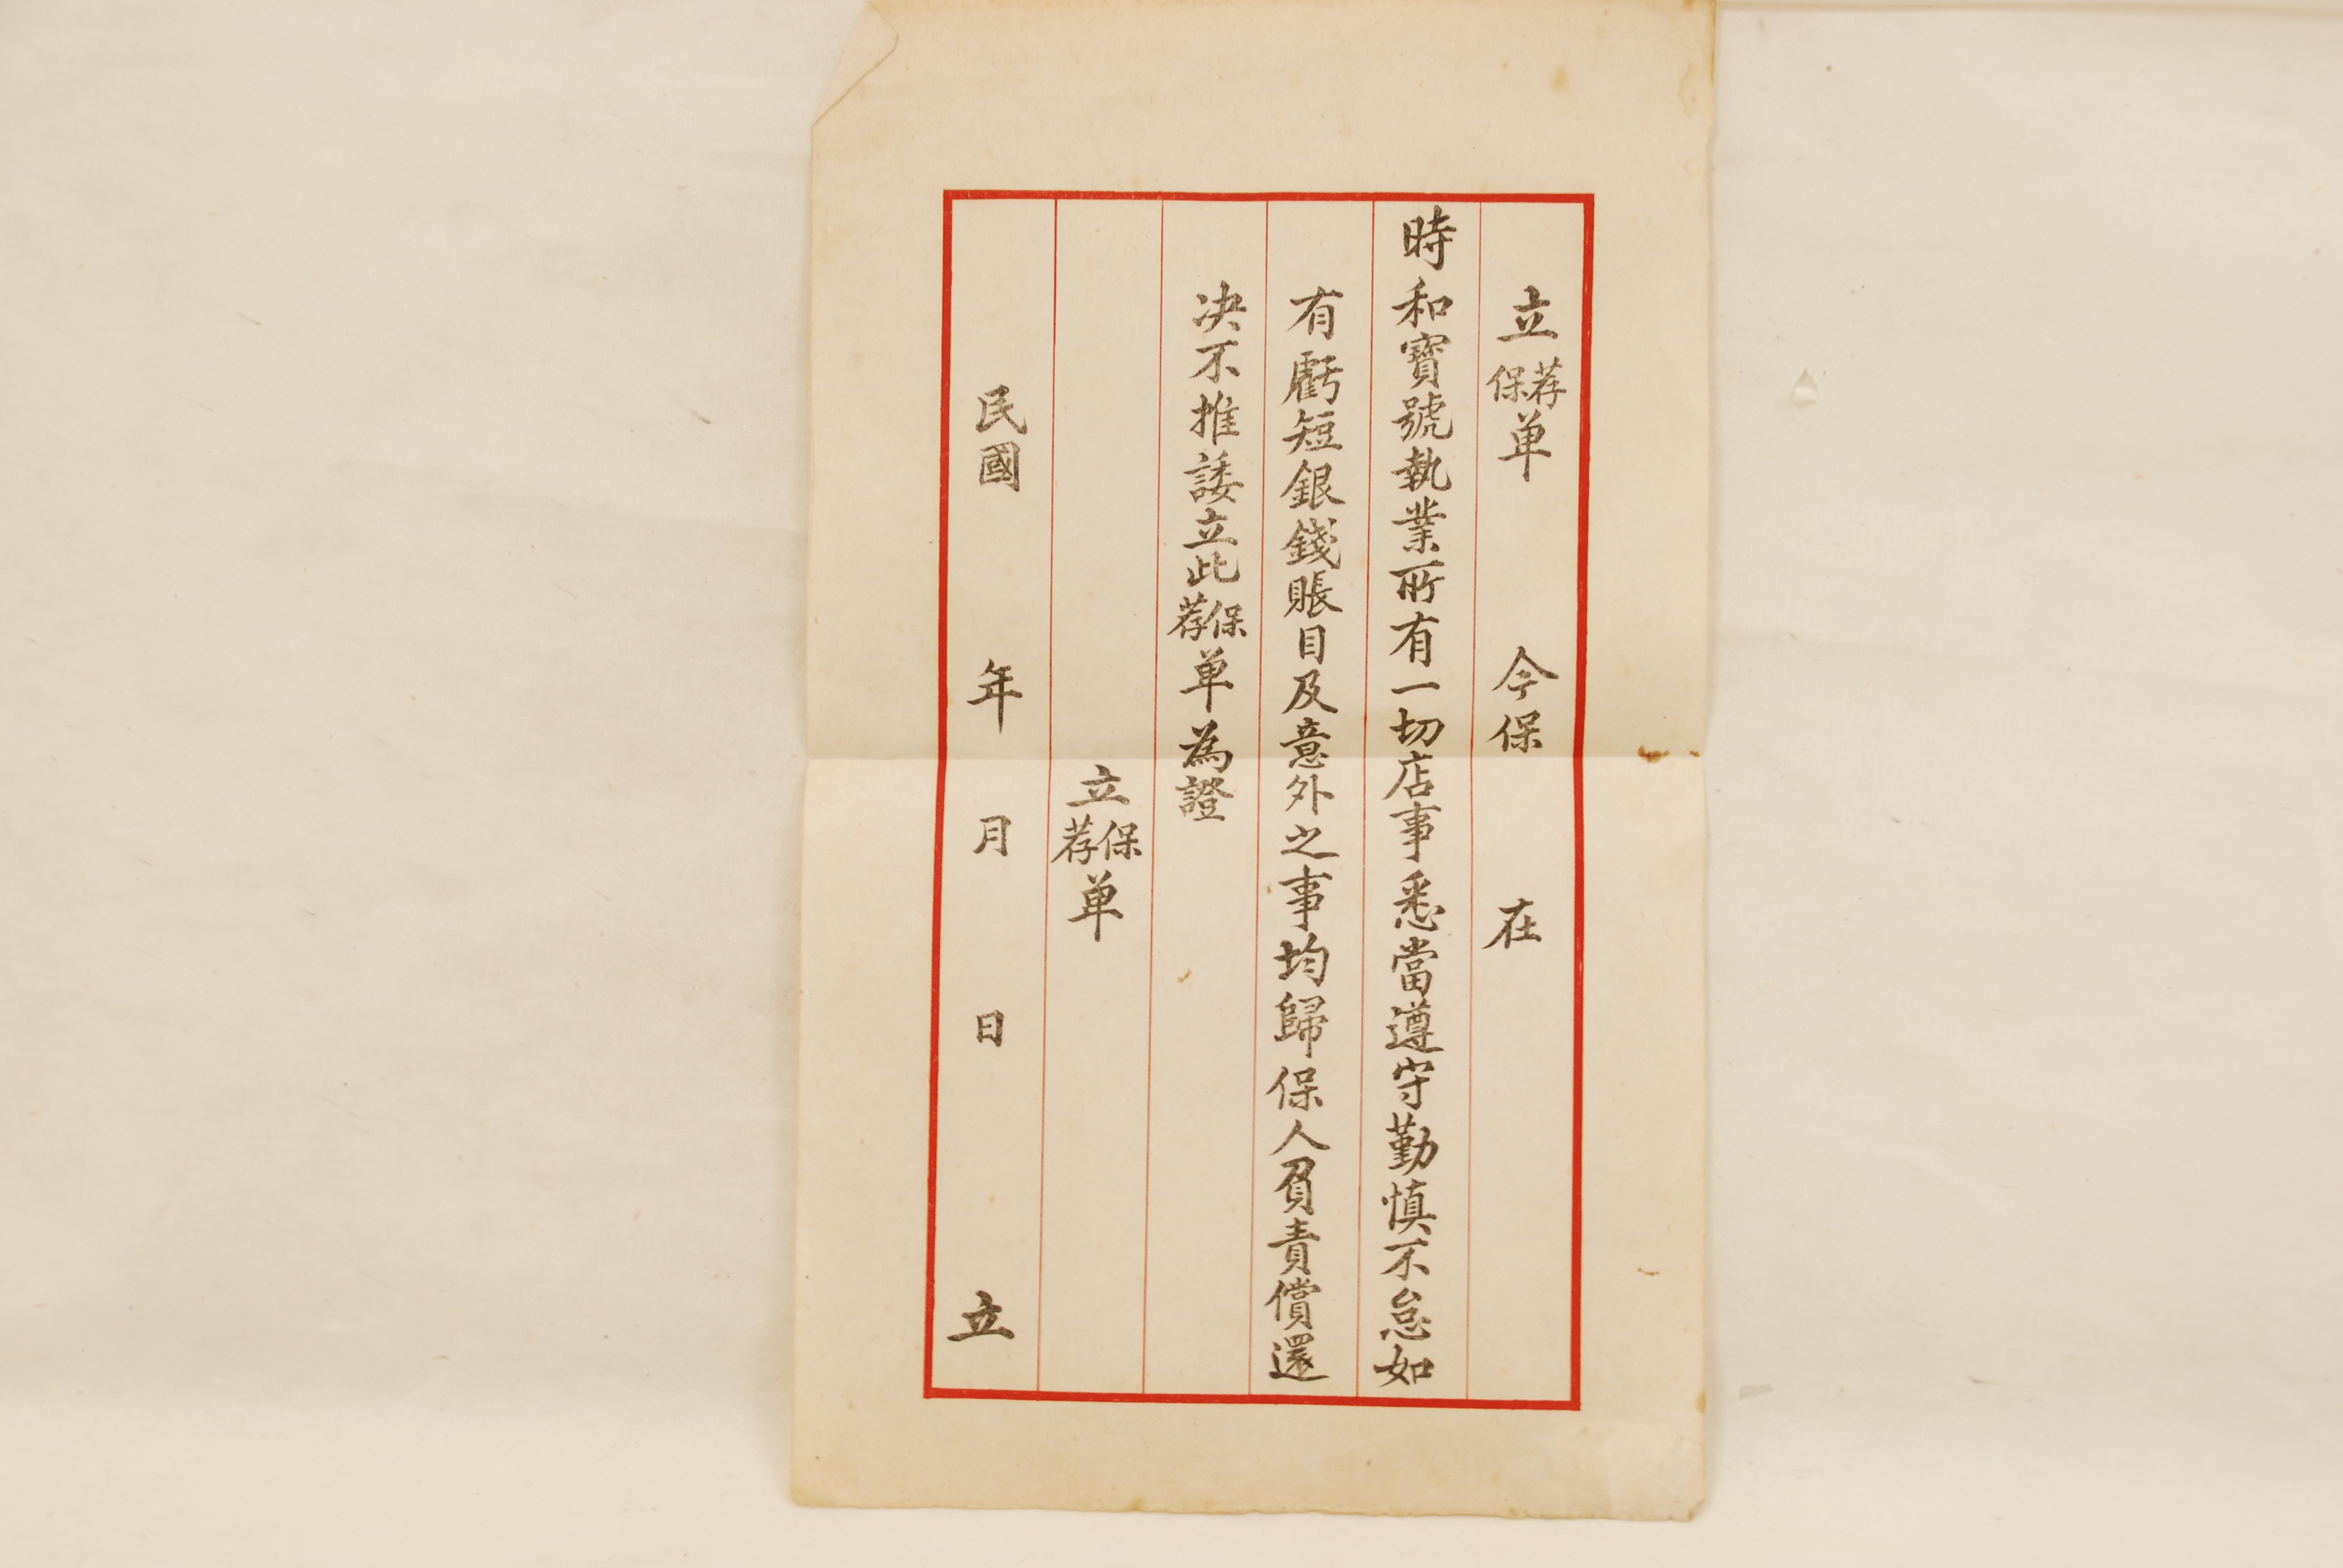 立荐保单 今保 在
時和寳號執業所有一切店事悉當遵守勤慎不怠如
有虧短銀錢賬目及意外之事均歸保人負責償還
决不推諉立此保荐单為證
立保荐单
民國 年 月 日 立